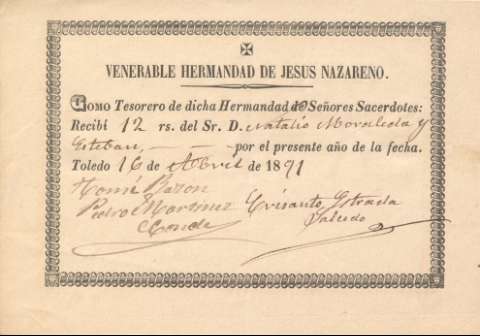 ✠
VENERABLE HERMANDAD DE JESUS NAZARENO.
COMO Tesorero de dicha Hermandad de Señores Sacerdotes:
Recibí 12 rs. del Sr. D. Natalio Moraleda y
Esteban, — — por el presente año de la fecha.
Toledo 16 de Abril de 1891
Tomé Razon
Pedro Martinez Crisanto Estrada
Conde Salcedo